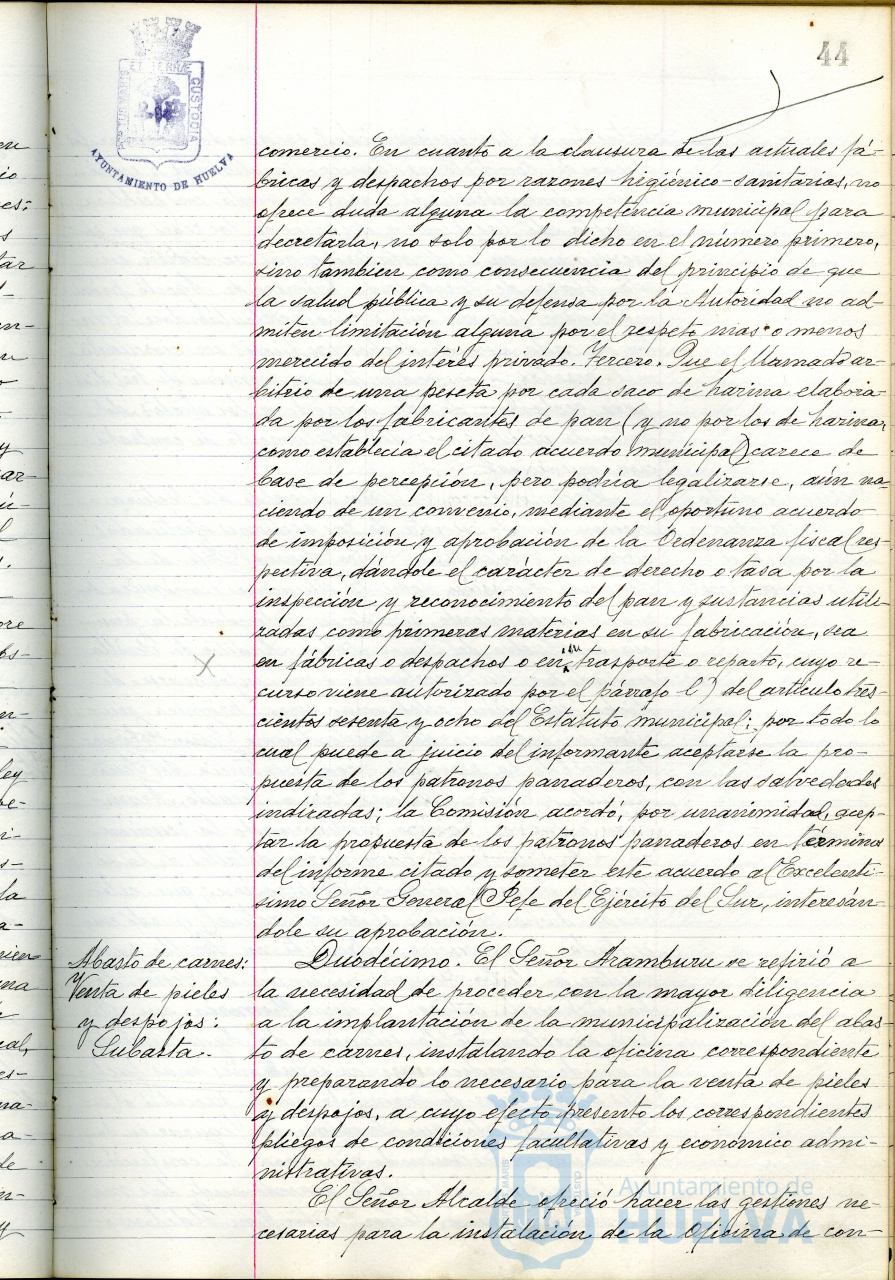 44
PORTUS MARIS ET TERRÆ CUSTODIA
AYUNTAMIENTO DE HUELVA
comercio. En cuanto a la clausura de las actuales fá-
bricas y despachos por razones higiénico-sanitarias, no
ofrece duda alguna la competencia municipal para
decretarla, no solo por lo dicho en el número primero,
sino tambien como consecuencia del principio de que
la salud pública y su defensa por la Autoridad no ad-
miten limitación alguna por el respeto mas o menos
merecido del interés privado. Tercero. Que el llamado ar-
bitrio de una peseta por cada saco de harina elabora-
da por los fabricantes de pan (y no por los de harina,
como establecía el citado acuerdo municipal) carece de
base de percepción, pero podría legalizarse, aún na-
ciendo de un convenio, mediante el oportuno acuerdo
de imposición y aprobación de la Ordenanza fiscal res-
pectiva, dándole el carácter de derecho o tasa por la
inspección y reconocimiento del pan y sustancias utili-
zadas como primeras materias en su fabricación, sea
en fábricas o despachos o en su trasporte o reparto, cuyo re-
curso viene autorizado por el párrafo l) del artículo tres-
cientos sesenta y ocho del Estatuto municipal; por todo lo
cual puede a juicio del informante aceptarse la pro-
puesta de los patronos panaderos, con las salvedades
indicadas; la Comisión acordó, por unanimidad, acep-
tar la propuesta de los patronos panaderos en términos
del informe citado y someter este acuerdo al Excelentí-
simo Señor General Jefe del Ejército del Sur, interesán-
dole su aprobación.
Abasto de carnes:
Venta de pieles
y despojos:
Subasta.
Duodécimo. El Señor Aramburu se refirió a
la necesidad de proceder con la mayor diligencia
a la implantación de la municipalización del abas-
to de carnes, instalando la oficina correspondiente
y preparando lo necesario para la venta de pieles
y despojos, a cuyo efecto presentó los correspondientes
pliegos de condiciones facultativas y económico admi-
nistrativas.
El Señor Alcalde ofreció hacer las gestiones ne-
cesarias para la instalación de la Oficina de con-
Ayuntamiento de
HUELVA